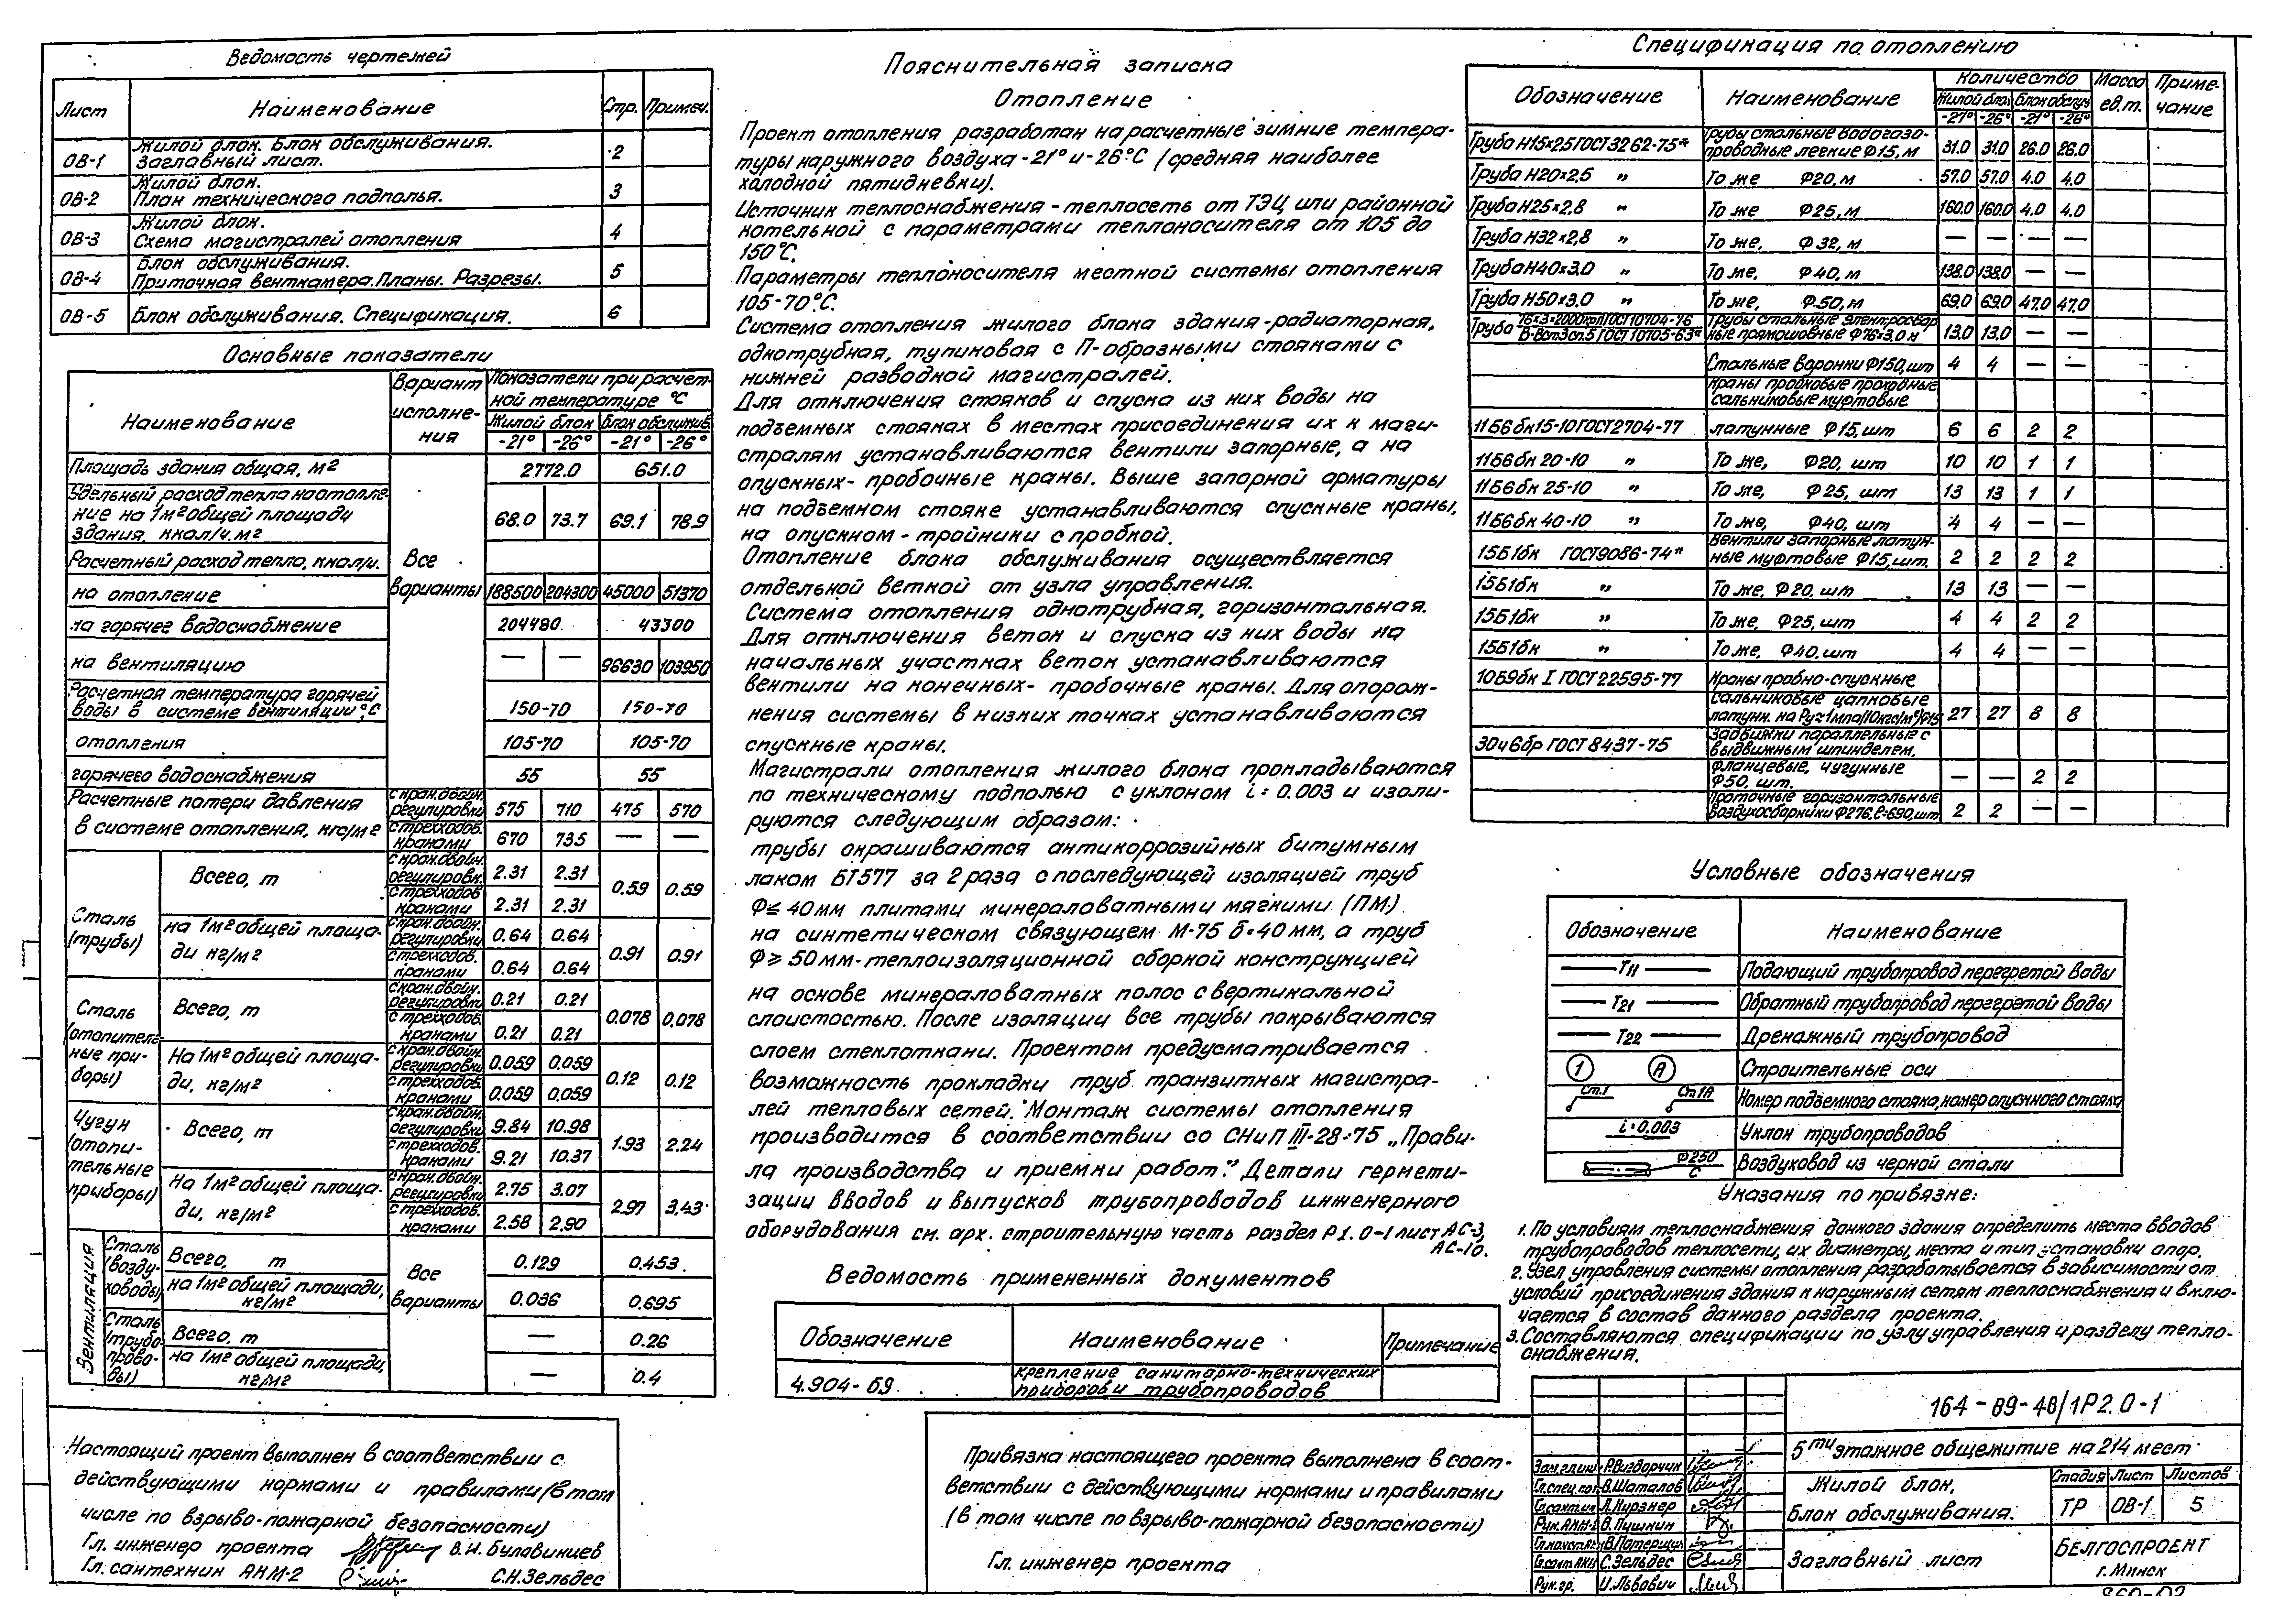 Ведомость чертежей
Лист Наименование Стр. Примеч.
ОВ-1 Жилой блок. Блок обслуживания. Заглавный лист. 2
ОВ-2 Жилой блок. План технического подполья. 3
ОВ-3 Жилой блок. Схема магистралей отопления 4
ОВ-4 Блок обслуживания. Приточная венткамера. Планы. Разрезы. 5
ОВ-5 Блок обслуживания. Спецификация. 6
Основные показатели
Наименование Вариант исполнения Показатели при расчетной температуре °С
Жилой блок Блок обслужив.
-21° -26° -21° -26°
Площадь здания общая, м² 2772.0 651.0
Удельный расход тепла на отопление на 1м² общей площади здания, ккал/ч.м² 68.0 73.7 69.1 78.9
Расчетный расход тепла, ккал/ч. Все варианты
на отопление 188500 204300 45000 51370
на горячее водоснабжение 204480 43300
на вентиляцию — — 96630 103950
Расчетная температура горячей воды в системе вентиляции °С 150-70 150-70
отопления 105-70 105-70
горячего водоснабжения 55 55
Расчетные потери давления в системе отопления, кгс/м²
с кран. двойн. регулировки 575 710 475 570
с трехходов. кранами 670 735 — —
Сталь (трубы)
Всего, т
с кран. двойн. регулировк. 2.31 2.31 0.59 0.59
с трехходов. кранами 2.31 2.31
на 1м² общей площади кг/м²
с кран. двойн. регулировки 0.64 0.64 0.91 0.91
с трехходов. кранами 0.64 0.64
Сталь (отопительные приборы)
Всего, т
с кран. двойн. регулировки 0.21 0.21 0.078 0.078
с трехходов. кранами 0.21 0.21
На 1м² общей площади, кг/м²
с кран. двойн. регулировки 0.059 0.059 0.12 0.12
с трехходов. кранами 0.059 0.059
Чугун (отопительные приборы)
Всего, т
с кран. двойн. регулировки 9.84 10.98 1.93 2.24
с трехходов. кранами 9.21 10.37
На 1м² общей площади, кг/м²
с кран. двойн. регулировки 2.75 3.07 2.97 3.43
с трехходов. кранами 2.58 2.90
Вентиляция
Сталь (воздуховоды)
Всего, т Все варианты 0.129 0.453
на 1м² общей площади, кг/м² 0.036 0.695
Сталь (трубопроводы)
Всего, т — 0.26
на 1м² общей площади, кг/м² — 0.4
Настоящий проект выполнен в соответствии с
действующими нормами и правилами (в том
числе по взрыво-пожарной безопасности)
Гл. инженер проекта В.И. Булавинцев
Гл. сантехник АКМ-2 С.Н. Зельдес
Пояснительная записка
Отопление
Проект отопления разработан на расчетные зимние темпера-
туры наружного воздуха -21° и -26°С (средняя наиболее
холодной пятидневки).
Источник теплоснабжения - теплосеть от ТЭЦ или районной
котельной с параметрами теплоносителя от 105 до
150°С.
Параметры теплоносителя местной системы отопления
105-70°С.
Система отопления жилого блока здания - радиаторная,
однотрубная, тупиковая с П-образными стояками с
нижней разводкой магистралей.
Для отключения стояков и спуска из них воды на
подъемных стояках в местах присоединения их к маги-
стралям устанавливаются вентили запорные, а на
опускных - пробочные краны. Выше запорной арматуры
на подъемном стояке устанавливаются спускные краны,
на опускном - тройники с пробкой.
Отопление блока обслуживания осуществляется
отдельной веткой от узла управления.
Система отопления однотрубная, горизонтальная.
Для отключения веток и спуска из них воды на
начальных участках веток устанавливаются
вентили на конечных - пробочные краны. Для опорож-
нения системы в низких точках устанавливаются
спускные краны.
Магистрали отопления жилого блока прокладываются
по техническому подполью с уклоном i = 0.003 и изоли-
руются следующим образом:
трубы окрашиваются антикоррозийных битумным
лаком БТ577 за 2 раза с последующей изоляцией труб
Ф≤ 40мм плитами минераловатными мягкими (ПМ)
на синтетическом связующем М-75 б=40мм, а труб
Ф≥ 50мм-теплоизоляционной сборной конструкцией
на основе минераловатных полос с вертикальной
слоистостью. После изоляции все трубы покрываются
слоем стеклоткани. Проектом предусматривается
возможность прокладки труб транзитных магистра-
лей тепловых сетей. Монтаж системы отопления
производится в соответствии со СНиП III-28-75 „Прави-
ла производства и приемки работ." Детали гермети-
зации вводов и выпусков трубопроводов инженерного
оборудования см. арх. строительную часть раздел Р1.0-1 лист АС-3,
АС-10.
Ведомость примененных документов
Обозначение Наименование Примечание
4.904-69 Крепление санитарно-технических приборов и трубопроводов
Привязка настоящего проекта выполнена в соот-
ветствии с действующими нормами и правилами
(в том числе по взрыво-пожарной безопасности)
Гл. инженер проекта
Спецификация по отоплению
Обозначение Наименование Количество Масса ед.т. Примечание
Жилой блок Блок обслуж
-21° -26° -21° -26°
Труба Н15×2,5 ГОСТ 3262-75* Трубы стальные водогазопроводные легкие Ф15, м 31.0 31.0 26.0 26.0
Труба Н20×2,5 " То же Ф20, м 57.0 57.0 4.0 4.0
Труба Н25×2,8 " То же Ф25, м 160.0 160.0 4.0 4.0
Труба Н32×2,8 " То же, Ф32, м — — — —
Труба Н40×3.0 " То же, Ф40, м 138.0 138.0 — —
Труба Н50×3.0 " То же, Ф50, м 69.0 69.0 47.0 47.0
Труба 76×3×2000 ГОСТ 10704-76 В-Вст3сп.5 ГОСТ 10705-63* Трубы стальные электросварные прямошовные Ф76×3.0 м 13.0 13.0 — —
Стальные воронки Ф150, шт 4 4 — —
Краны пробковые проходные сальниковые муфтовые
11Б6бк15-10 ГОСТ 2704-77 латунные Ф15, шт 6 6 2 2
11Б6бк 20-10 " То же, Ф20, шт 10 10 1 1
11Б6бк 25-10 " То же, Ф25, шт 13 13 1 1
11Б6бк 40-10 " То же, Ф40, шт 4 4 — —
15Б1бк ГОСТ 9086-74* Вентили запорные латунные муфтовые Ф15, шт. 2 2 2 2
15Б1бк " То же, Ф20, шт 13 13 — —
15Б1бк " То же, Ф25, шт 4 4 2 2
15Б1бк " То же, Ф40, шт 4 4 — —
10Б9бк I ГОСТ 22595-77 Краны пробно-спускные
сальниковые цапковые латунн. на Ру=1мпа(10кгс/м²)Ф15 27 27 8 8
30ч6бр ГОСТ 8437-75 Задвижки параллельные с выдвижным шпинделем,
фланцевые, чугунные Ф50, шт. — — 2 2
Проточные горизонтальные воздухосборники Ф276, ℓ=690, шт 2 2 — —
Условные обозначения
Обозначение Наименование
Т11 Подающий трубопровод перегретой воды
Т21 Обратный трубопровод перегретой воды
Т22 Дренажный трубопровод
1 А Строительные оси
Ст.1 Ст.1А Номер подъемного стояка, номер опускного стояка
i=0.003 Уклон трубопроводов
Ф250 С Воздуховод из черной стали
Указания по привязке:
1. По условиям теплоснабжения данного здания определить места вводов
трубопроводов теплосети, их диаметры, места и тип установки опор.
2. Узел управления системы отопления разрабатывается в зависимости от
условий присоединения здания к наружным сетям теплоснабжения и вклю-
чается в состав данного раздела проекта.
3. Составляются спецификации по узлу управления и разделу тепло-
снабжения.
164-89-48/1Р2.0-1
5ти этажное общежитие на 214 мест
Зам.гл.инж Р.Вигдорчик
Гл.спец.пот В.Шаталов
Гл.сант.ин Л.Кирзнер
Рук.АКМ-2 В.Пушкин
Гл.сант.АКМ С.Зельдес
Рук.гр. И.Львович
Жилой блок,
Блок обслуживания.
Стадия Лист Листов
ТР ОВ-1 5
Заглавный лист
БЕЛГОСПРОЕКТ
г. Минск